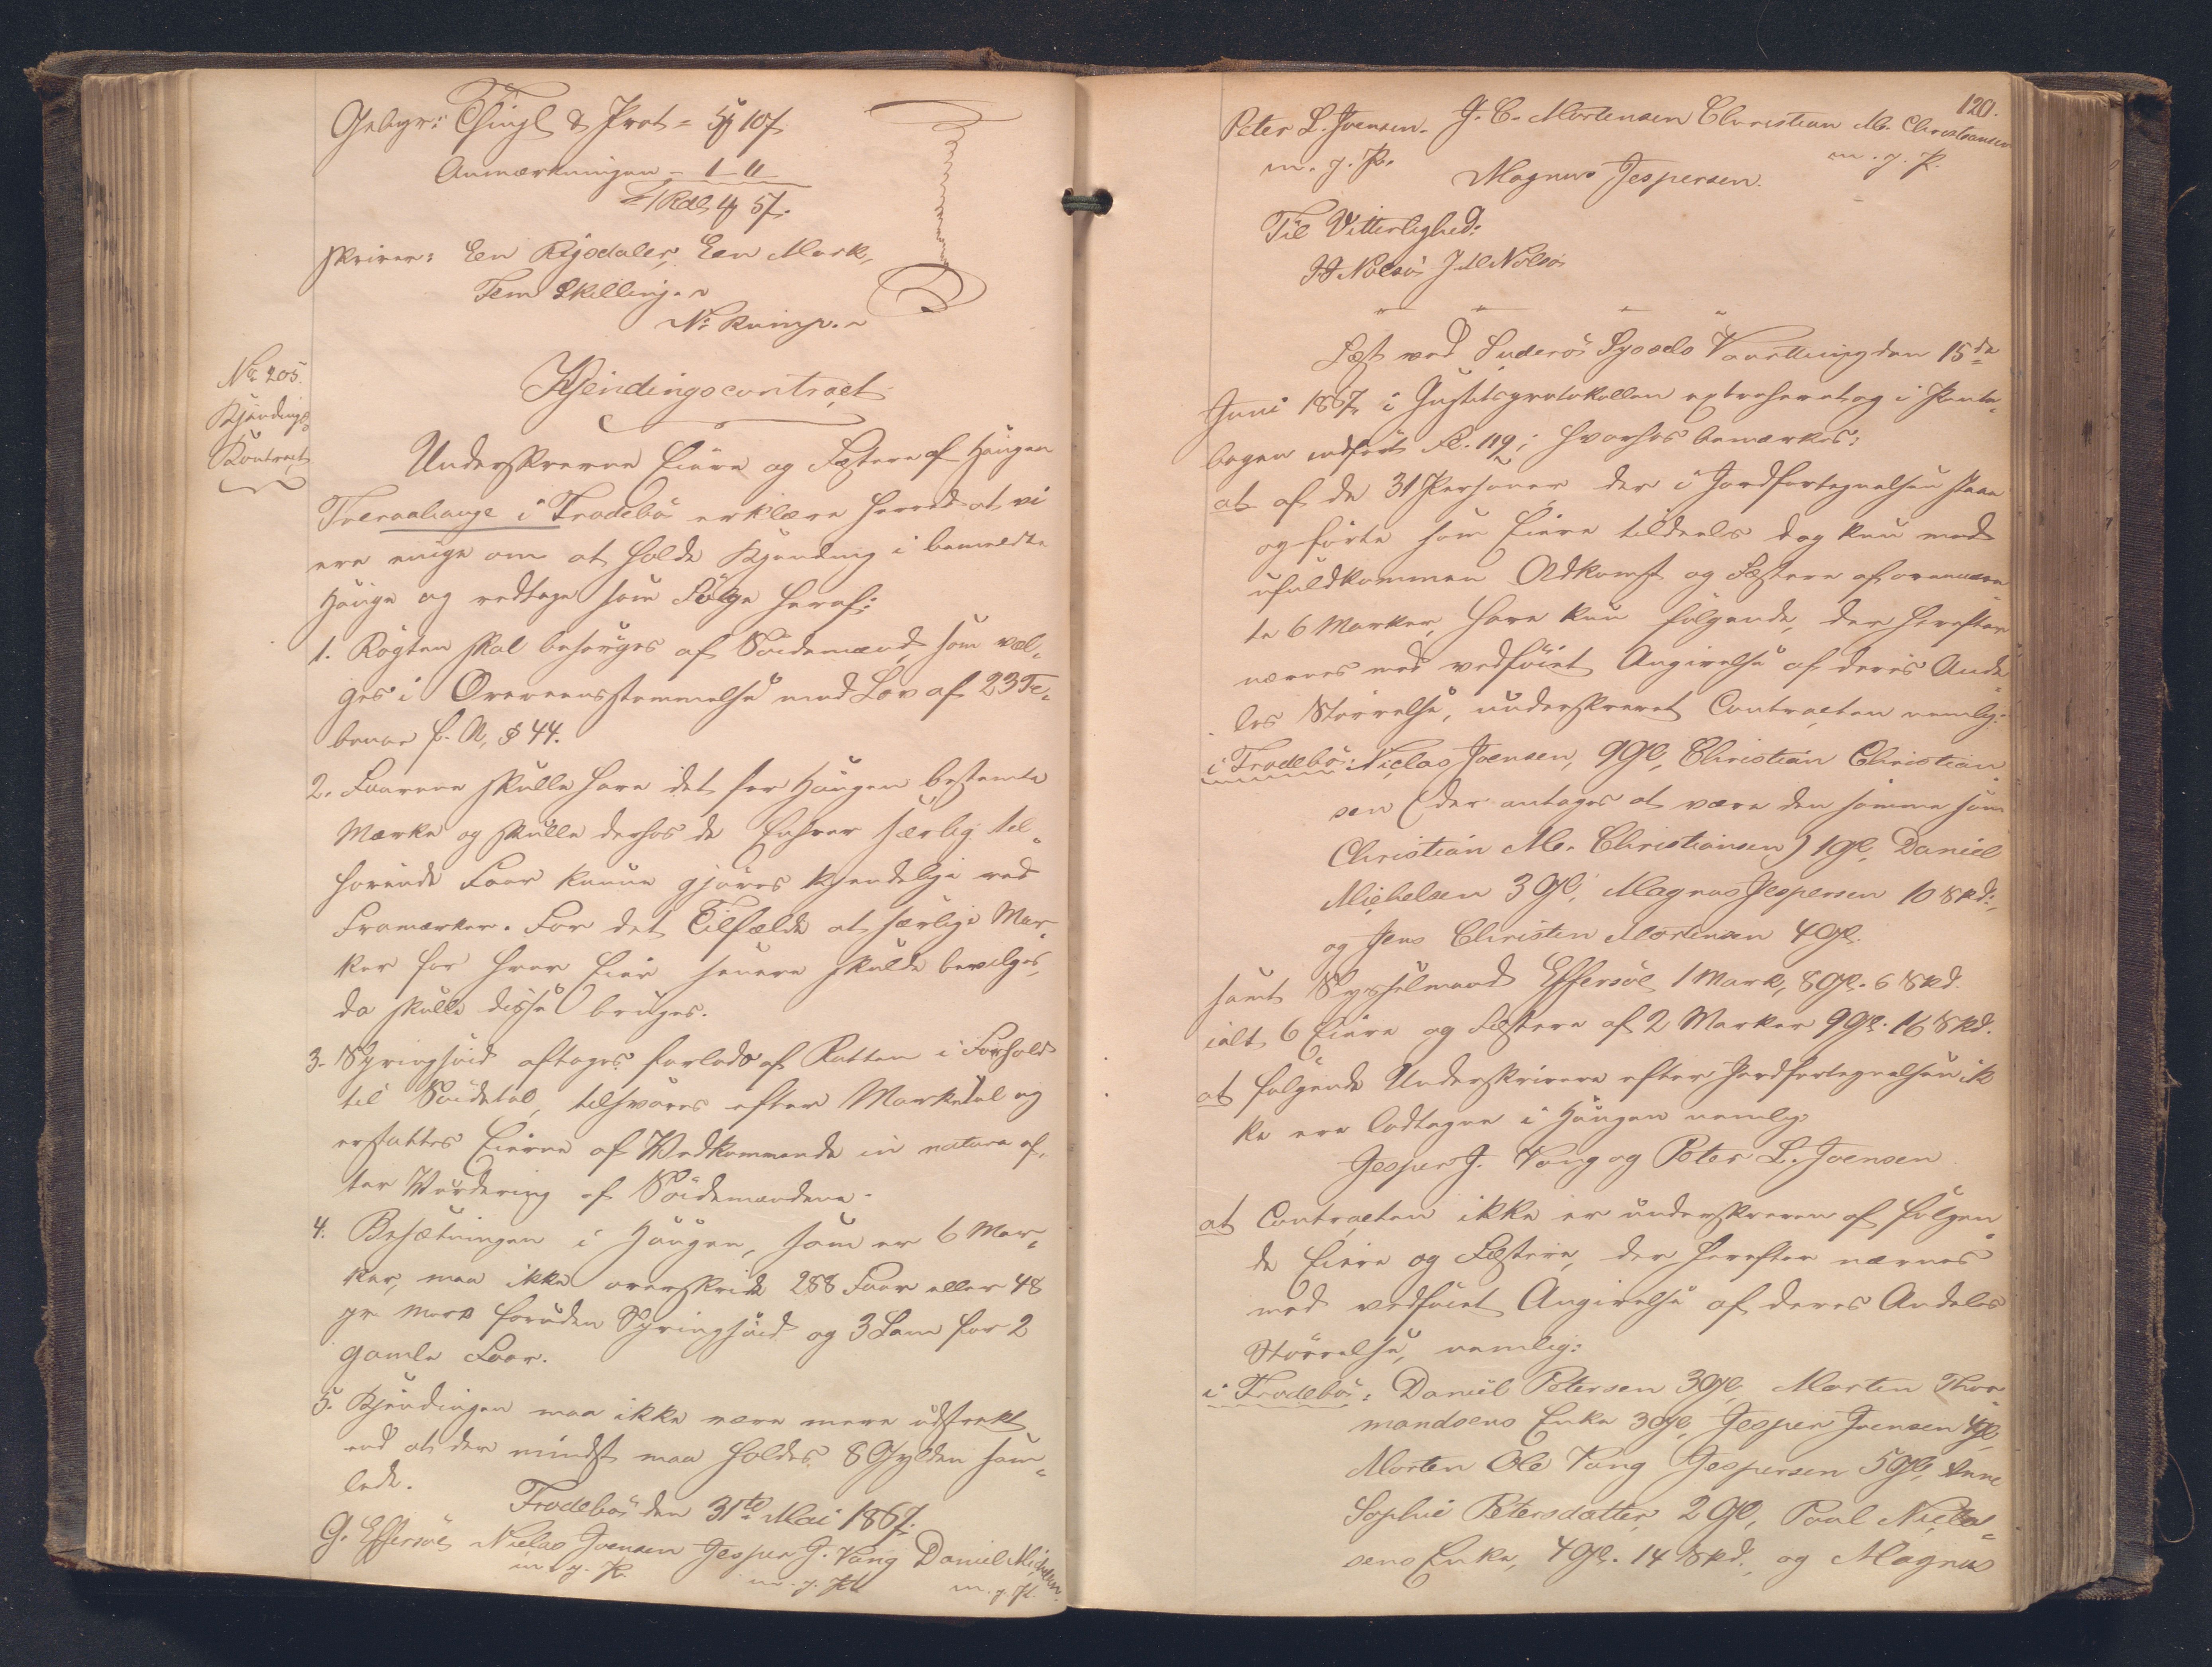 Gebyr: Thingl & Prot - 5 ꝟ 10 ß.
Anmærkningen - 1 - "
1 Rdl 1 ꝟ 5 ß.
skriver: Een Rigsdaler, Een Mark,
Fem Skilling. ~
No. 205.
Kjendings
Kontract
Kjendingscontract
Underskrevne Eiere og Fæstere af Haugen
Tveraahauge i Frodebø erklære herved at vi
ere enige om at holde Kjending i bemeldte
Hauge og vedtage som Følge heraf:
1. Røgten skal besørges af Søidemænd som væl-
ges i Overeensstemmelse med Lov af 23 Fe-
bruar f. A. § 44.
2. Faarene skulle have det for Haugen bestemte
Mærke og skulle derhos de Enhver særlig til-
hørende Faar kunne gjøres kjendelige ved
Framærker. For det Tilfælde at særlige Mær-
ker for hver Eier senere skulde bevilges,
da skulle disse bruges.
3. Springsøid aftages forlods af Retten i Forhold
til Søidetal, tilsvares efter Marketal og
erstattes Eieren af Vedkommende in natura ef-
ter Vurdering af Søidemændene.
4. Besætningen i Haugen, som er 6 Mar-
ker, maa ikke overskride 288 Faar eller 48
pr. Mark foruden Springsøid og 3 Lam for 2
gamle Faar.
5. Kjendingen maa ikke være mere udstrakt
end at der mindst maa holdes 8 Gylden sam-
lede.
Frodebø den 31te Mai 1867.
G. Effersøe Niclas Joensen Jesper J. Vang Daniel Michelsen
m. f. P. m. f. P. m. f. P.
120.
Peter L. Joensen. J. C. Mortensen Christian M. Christiansen
m. f. P. m. f. P.
Magnus Jespersen.
Til Vitterlighed:
Nolsøe J Nolsøe
Læst ved Suderø Syssels Vaarthing den 15de
Juni 1867, i Justitsprotokollen extraheret og i Pante-
bogen indført Fol. 119; hvorhos bemærkes:
at af de 31 Personer der i Jordfortegnelsen staae
opførte som Eiere tildeels dog kun med
ufuldkommen Adkomst og Fæstere af ovennævn-
te 6 Marker, have kun følgende, der herefter
nævnes med vedføiet Angivelse af deres Ande-
les Størrelse, underskrevet Contracten nemlig:
i Frodebø: Niclas Joensen, 9 Gl, Christian Christian-
sen (der antages at være den samme som
Christian M. Christiansen) 1 Gl, Daniel
Michelsen 3 Gl, Magnus Jespersen 10 Skd.,
og Jens Christen Mortensen 4 Gl.
samt Sysselmand Effersøe 1 Mark, 8 Gl. 6 Skd.
ialt 6 Eiere og Fæstere af 2 Marker 9 Gl. 16 Skd.
at følgende Underskrivere efter Jordfortegnelsen ik-
ke ere lodtagne i Haugen nemlig:
Jesper J. Vang og Peter L. Joensen
at Contracten ikke er underskreven af følgen-
de Eiere og Fæstere, der herefter nævnes
med vedføiet Angivelse af deres Andeles
Størrelse, nemlig:
i Frodebø: Daniel Petersen 3 Gl, Morten Thor-
mandsens Enke 3 Gl, Jesper Joensen 4 Gl,
Morten Ole Vang Jespersen 5 Gl, Anne
Sophie Petersdatter 2 Gl, Poul Niclas-
sens Enke, 4 Gl. 14 Skd., og Magnus